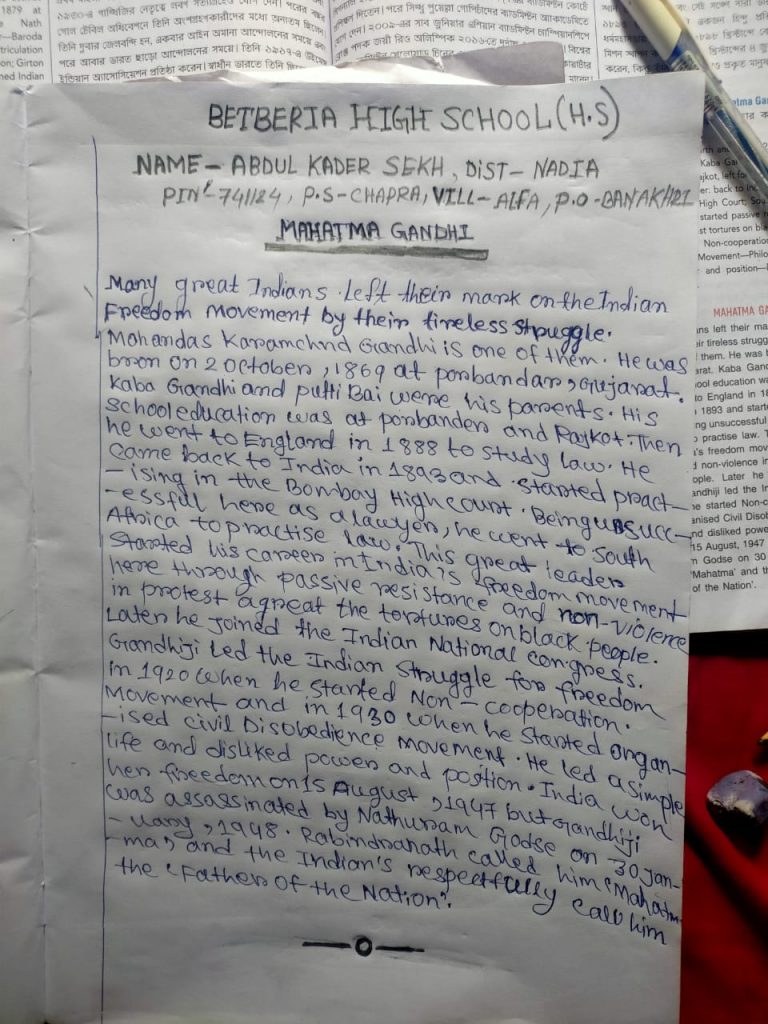 1879 at
Nath
—Baroda
triculation
on; Girton
ned Indian
BETBERIA HIGH SCHOOL (H.S)
NAME - ABDUL KADER SEKH, DIST- NADIA
PIN - 741124, P.S-CHAPRA, VILL- ALFA, P.O -BANAKHRI
MAHATMA GANDHI
Many great Indians left their mark on the Indian
Freedom Movement by their tireless struggle.
Mohandas Karamchnd Gandhi is one of them. He was
bron on 2 october, 1869 at porbandar, Gujarat.
Kaba Gandhi and putli Bai were his parents. His
school education was at porbander and Rajkot. Then
he went to England in 1888 to study law. He
came back to India in 1893 and started pract-
-ising in the Bombay High court. Being unsucc-
-essful here as a lawyer, he went to south
Africa to practise law. This great leader
started his career in India's freedom movement
here through passive resistance and non-violence
in protest agreat the tortures on black people.
Later he joined the Indian National congress.
Gandhiji Led the Indian struggle for freedom
in 1920 when he started Non-cooperation.
Movement and in 1930 when he started organ-
-ised civil Disobedience movement. He led a simple
life and disliked power and postion. India won
her freedom on 15 August, 1947 but Gandhiji
was assassinated by Nathuram Godse on 30 Jan-
-uary, 1948. Rabindranath called him 'Mahatm-
-ma' and the Indian's respectfully call him
the 'Father of the Nation'.
MAHATMA GA
ns left their ma
ir tireless strugg
them. He was b
arat. Kaba Gand
ool education wa
to England in 18
1893 and starte
ng unsuccessful
practise law. T
's freedom mov
d non-violence in
ople. Later he
andhiji led the In
e started Non-c
anised Civil Disob
nd disliked powe
15 August, 1947
n Godse on 30
'Mahatma' and th
of the Nation'.